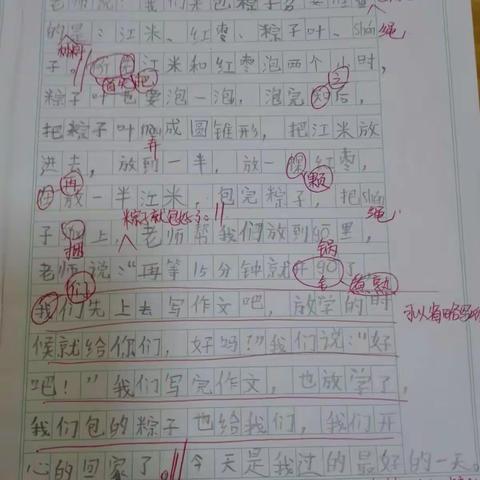 老师说："我们来包粽子
的是：江米、红枣、粽子叶、shén绳
子。江米和红枣泡两个小时，
粽子叶也要泡一泡，泡完之后，
把粽子叶弄成圆锥形，把江米放
进去，放到一半，放一颗红枣，
再放一半江米，包完粽子，把shén绳
粽子就包好了。
子捆上，老师帮我们放到锅里，
老师说："再等15分钟就
我们先上去写作文吧，放学的时
候就给你们，好吗！"我们说："好
吧！"我们写完作文，也放学了，
我们包的粽子也给我们，我们开
心的回家了。今天是我过的最好的一天。